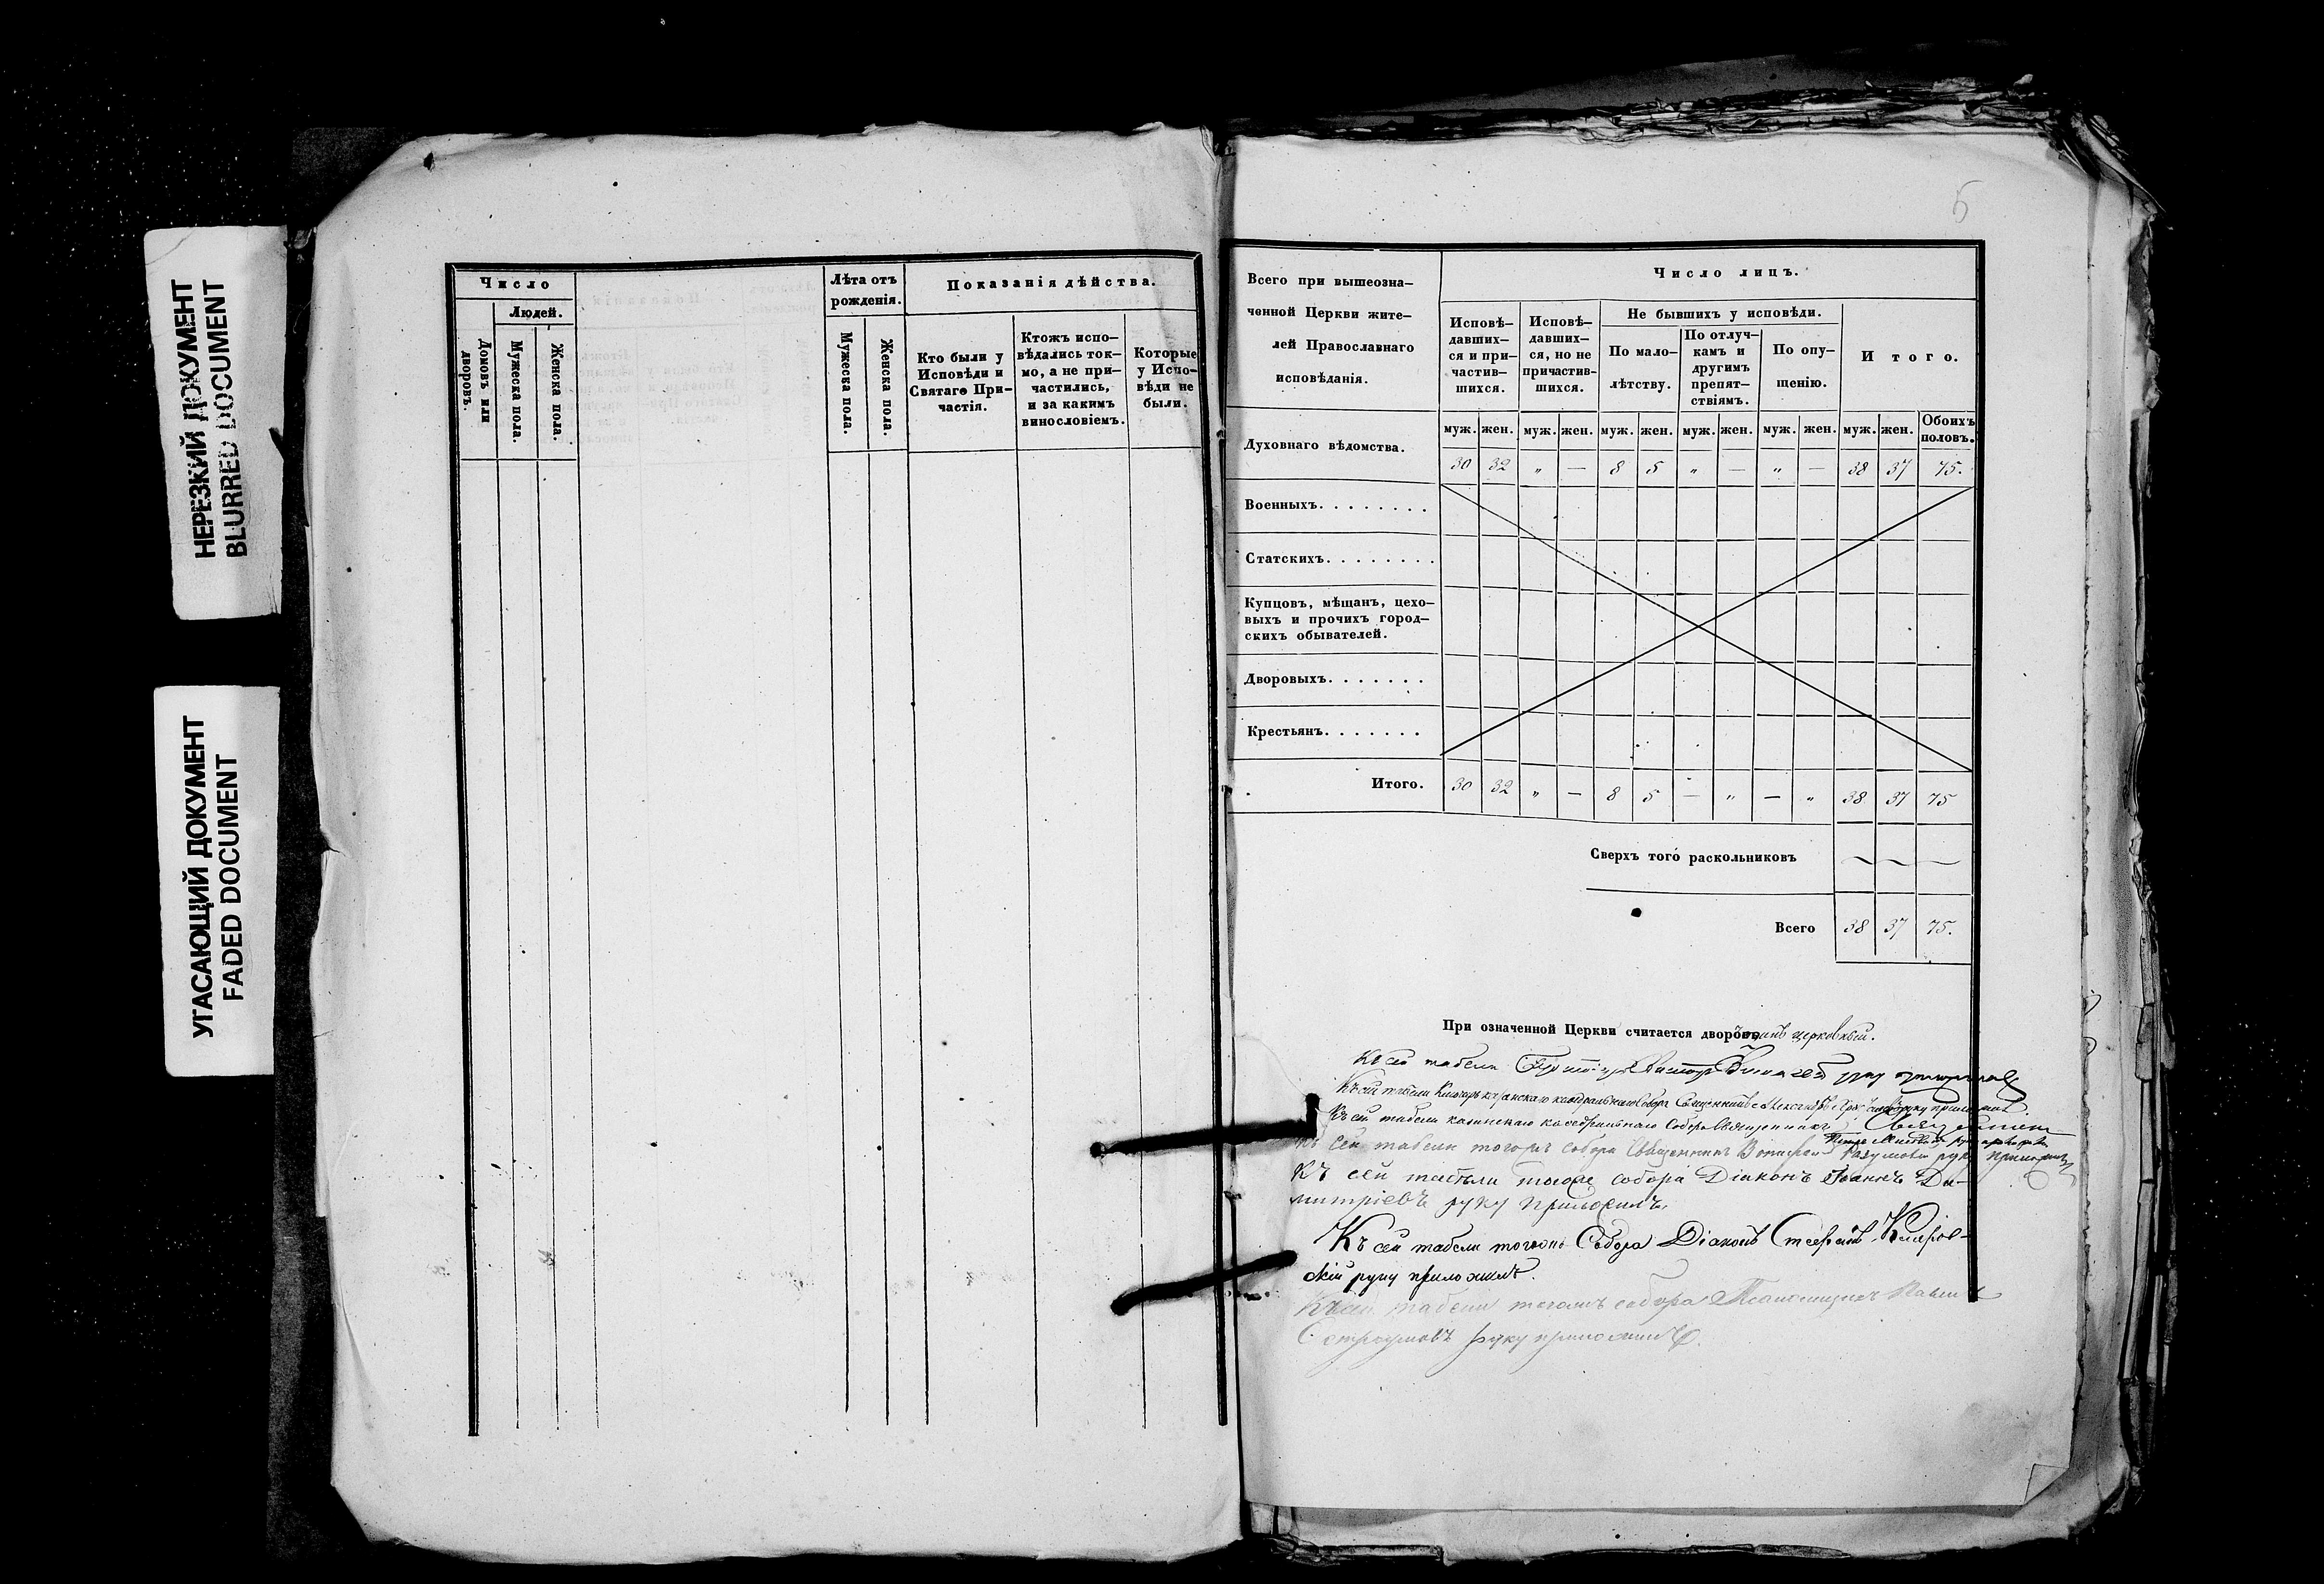 НЕРЕЗКИЙ ДОКУМЕНТ
BLURRED DOCUMENT
УГАСАЮЩИЙ ДОКУМЕНТ
FADED DOCUMENT
Число
Людей.
Домовъ или дворовъ.
Мужеска пола.
Женска пола.
Лѣта отъ
рожденія.
Мужеска пола.
Женска пола.
Показанія дѣйства.
Кто были у
Исповѣди и
Святаго При-
частія.
Ктожъ испо-
вѣдались ток-
мо, а не при-
частились,
и за какимъ
винословіемъ.
Которые
у Испо-
вѣди не
были.
5
Всего при вышеозна-
ченной Церкви жите-
лей Православнаго
исповѣданія.
Число лицъ.
Исповѣ-
давших-
ся и при-
частив-
шихся.
Исповѣ-
давших-
ся, но не
причастив-
шихся.
Не бывшихъ у исповѣди.
По мало-
лѣтству.
По отлуч-
камъ и
другимъ
препят-
ствіямъ.
По опу-
щенію.
Итого.
муж. жен. муж. жен. муж. жен. муж. жен. муж. жен. муж. жен. Обоихъ
половъ.
Духовнаго вѣдомства.
30 32 „ — 8 5 „ — „ — 38 37 75.
Военныхъ. . . . . . . .
Статскихъ. . . . . . . .
Купцовъ, мѣщанъ, цехо-
выхъ и прочихъ город-
скихъ обывателей.
Дворовыхъ. . . . . . .
Крестьянъ. . . . . . .
Итого. 30 32 „ — 8 5 — „ — „ 38 37 75
Сверхъ того раскольниковъ
Всего 38 37 75.
При означенной Церкви считается дворовъ церковный.
Къ сей табели
Къ сей табели Ключарь Казанскаго каѳедральнаго Собора Священникъ Александръ руку приложилъ.
Къ сей табели казанскаго каѳедральнаго Собора Священникъ
Къ сей табели тогожъ собора Священникъ руку приложилъ
Къ сей табели тогоже собора Діаконъ Іоаннъ Ди-
митріевъ руку приложилъ.
Къ сей табели тогожъ Собора Діаконъ Стефанъ
скій руку приложилъ.
Къ сей табели тогожъ собора Павелъ
руку приложилъ.